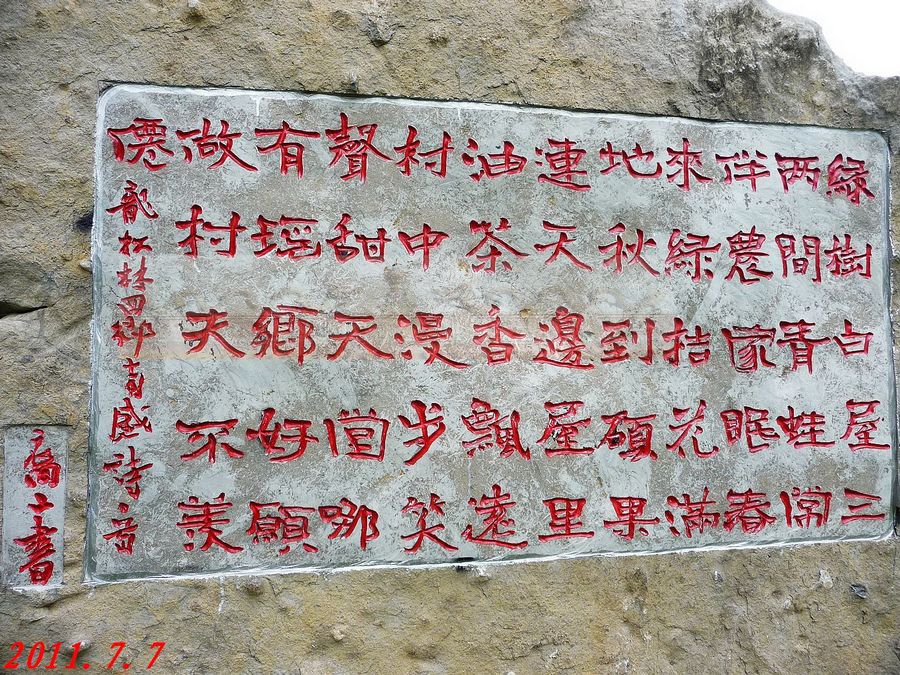 綠樹白屋三
两間青蛙常
伴農家眠春
來綠桔花滿
地秋到碩果
連天邊屋里
油茶香飄遠
村中漫步笑
聲甜天堂哪
有瑶鄉好願
做村夫不羨
僊
龍松林回鄉有感詩一首
書
2011. 7. 7